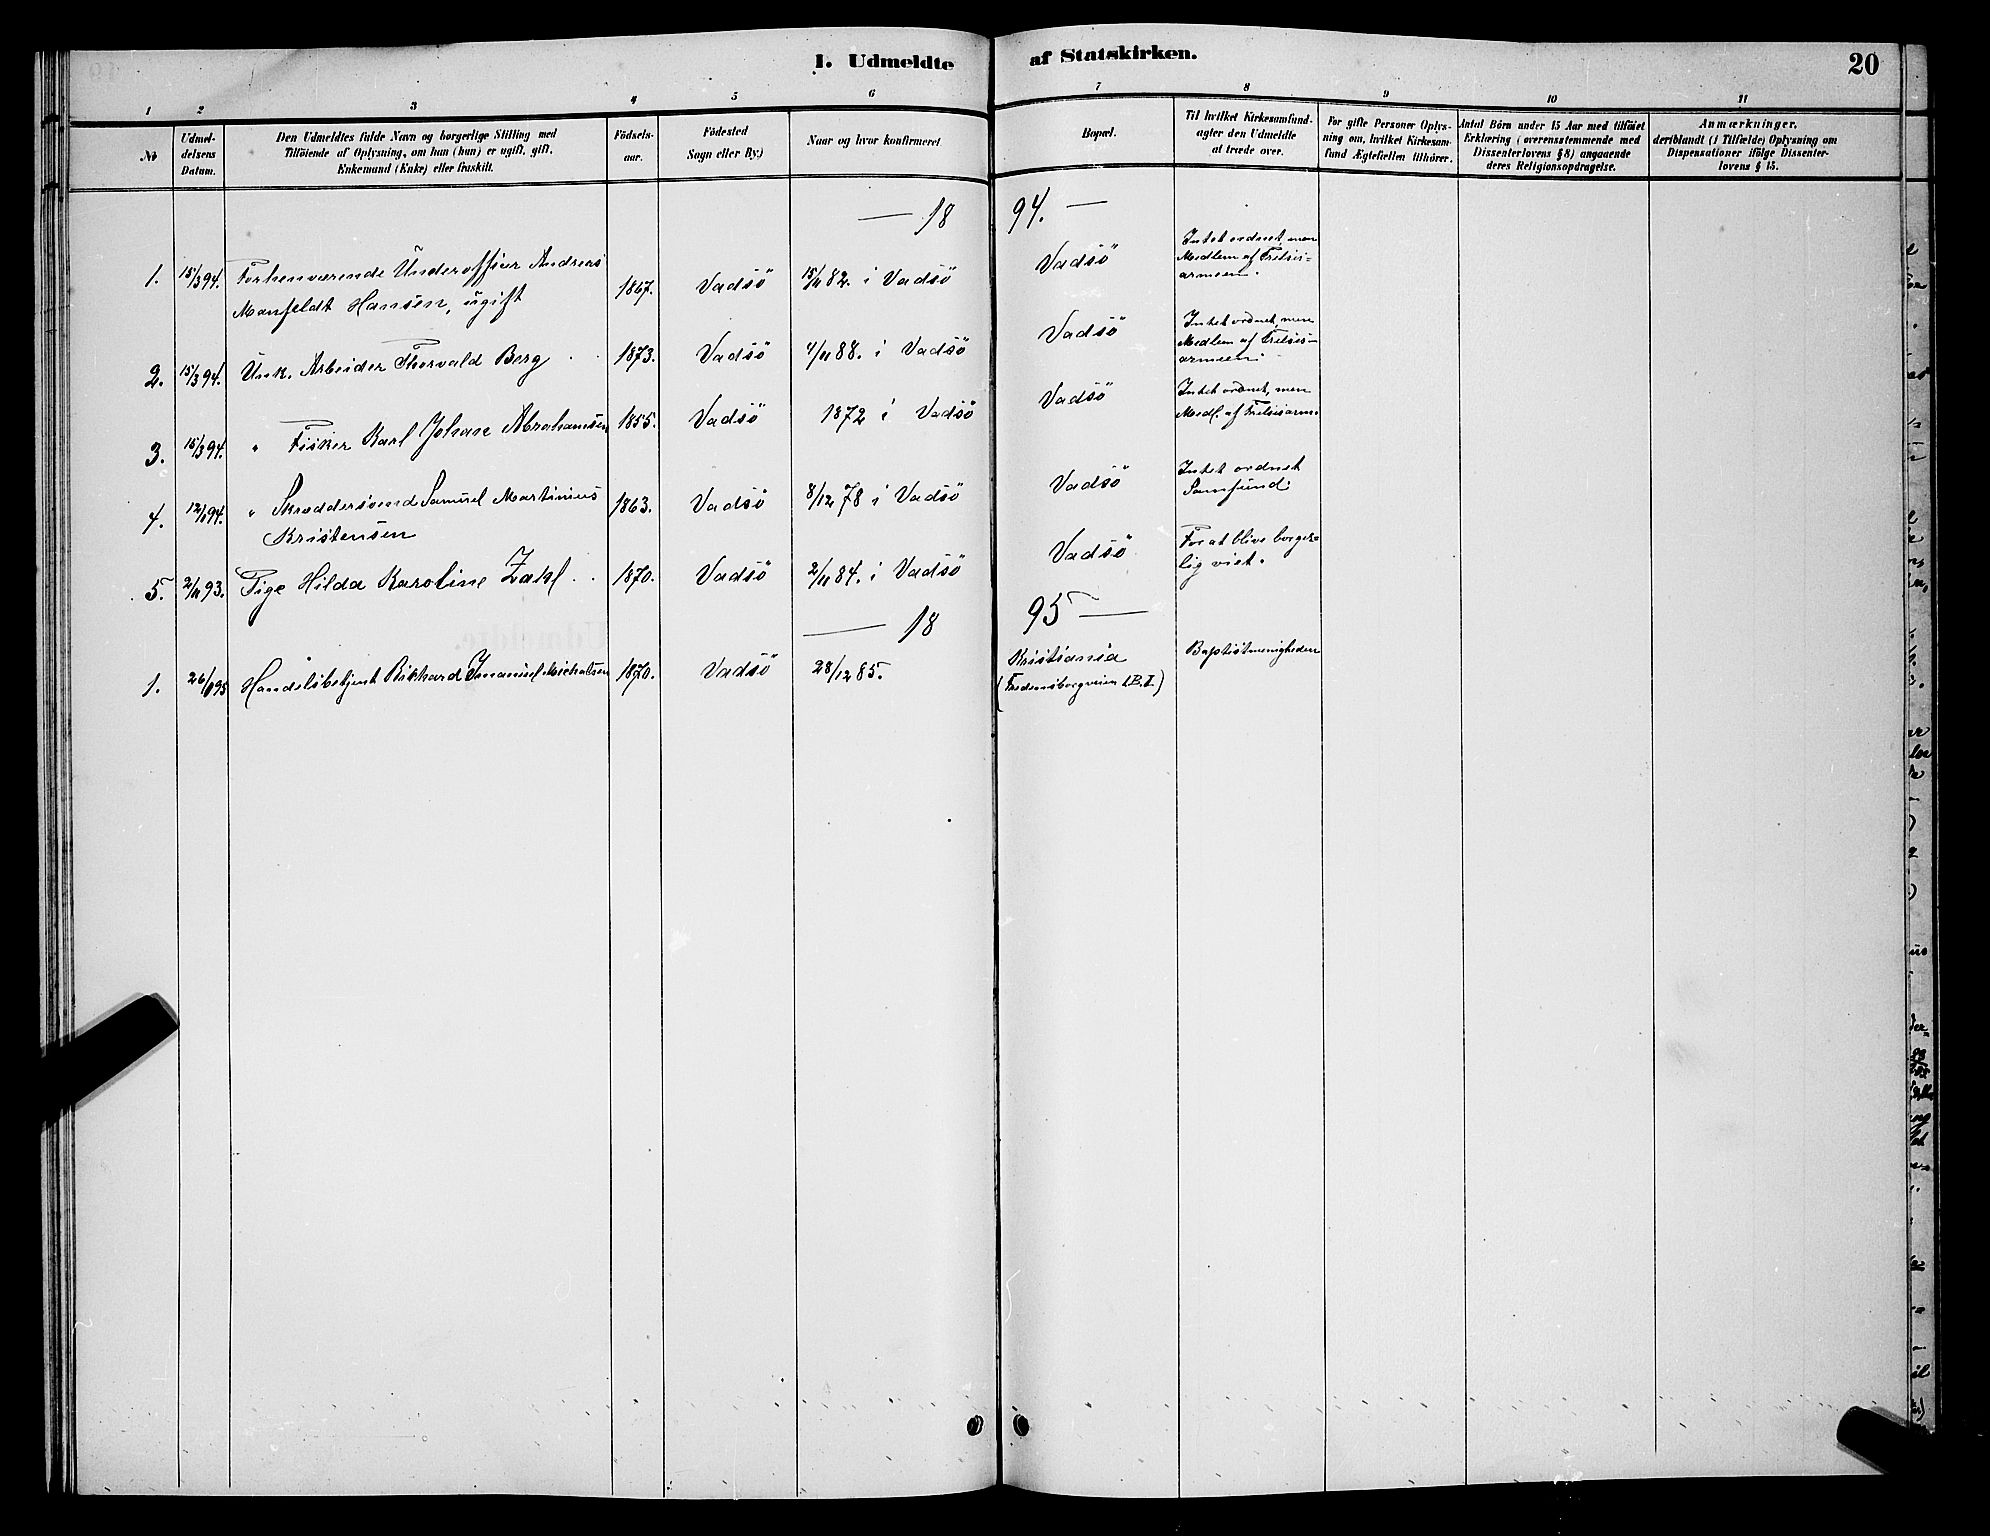 I. Udmeldte af Statskirken. 20
1 2 3 4 5 6 7 8 9 10 11
No
Udmel-
delsens
Datum.
Den Udmeldtes fulde Navn og borgerlige Stilling med
Tilföiende af Oplysning, om han (hun) er ugift, gift,
Enkemand (Enke) eller fraskilt.
Födsels-
aar.
Födested
Sogn eller By.)
Naar og hvor konfirmeret
Bopæl.
Til hvilket Kirkesamfund-
agter den Udmeldte
at træde over.
For gifte Personer Oplys-
ning om, hvilket Kirkesam-
fund Ægtefællen tilhörer.
Antal Börn under 15 Aar med tilföiet
Erklæring (overensstemmende med
Dissenterlovens § 8) angaaende
deres Religionsopdragelse.
Anmærkninger,
deriblandt (i Tilfælde) Oplysning om
Dispensationer ifölge Dissenter-
lovens § 15.
— 18 94. —
1. 15/3 94. Forhenværende Underoffisier Andreas
Manfeldt Hansen, ugift 1867. Vadsö 15/11 82. i Vadsö Vadsö
Intet ordnet, men
Medlem af Frelsis-
armeen.
2. 15/3 94. Unk. Arbeider Thorvald Berg 1873. Vadsö 4/11 88. i Vadsö Vadsö
Intet ordnet, men
Medlem af Frelsis-
armeen.
3. 15/3 94. " Fisker Karl Johan Abrahamsen 1855. Vadsö 1872 i Vadsö Vadsö
Intet ordnet, men
Medl. af Frelsisarm.
4. 12/1 94. " Skræddersvend Samuel Martinius
Kristensen 1863. Vadsö 8/12 78 i Vadsö Vadsö
Intet ordnet
Samfund.
5. 2/11 93. Pige Hilda Karoline Zahl 1870. Vadsö 2/11 84. i Vadsö Vadsö
For at blive borger-
lig viet.
— 18 95 —
1. 26/1 95 Handelsbetjent Rikhard Imanuel Michalsen 1870. Vadsö 28/12 85. Kristiania
(Fredensborgveien 1. B. I.)
Baptistmenigheden